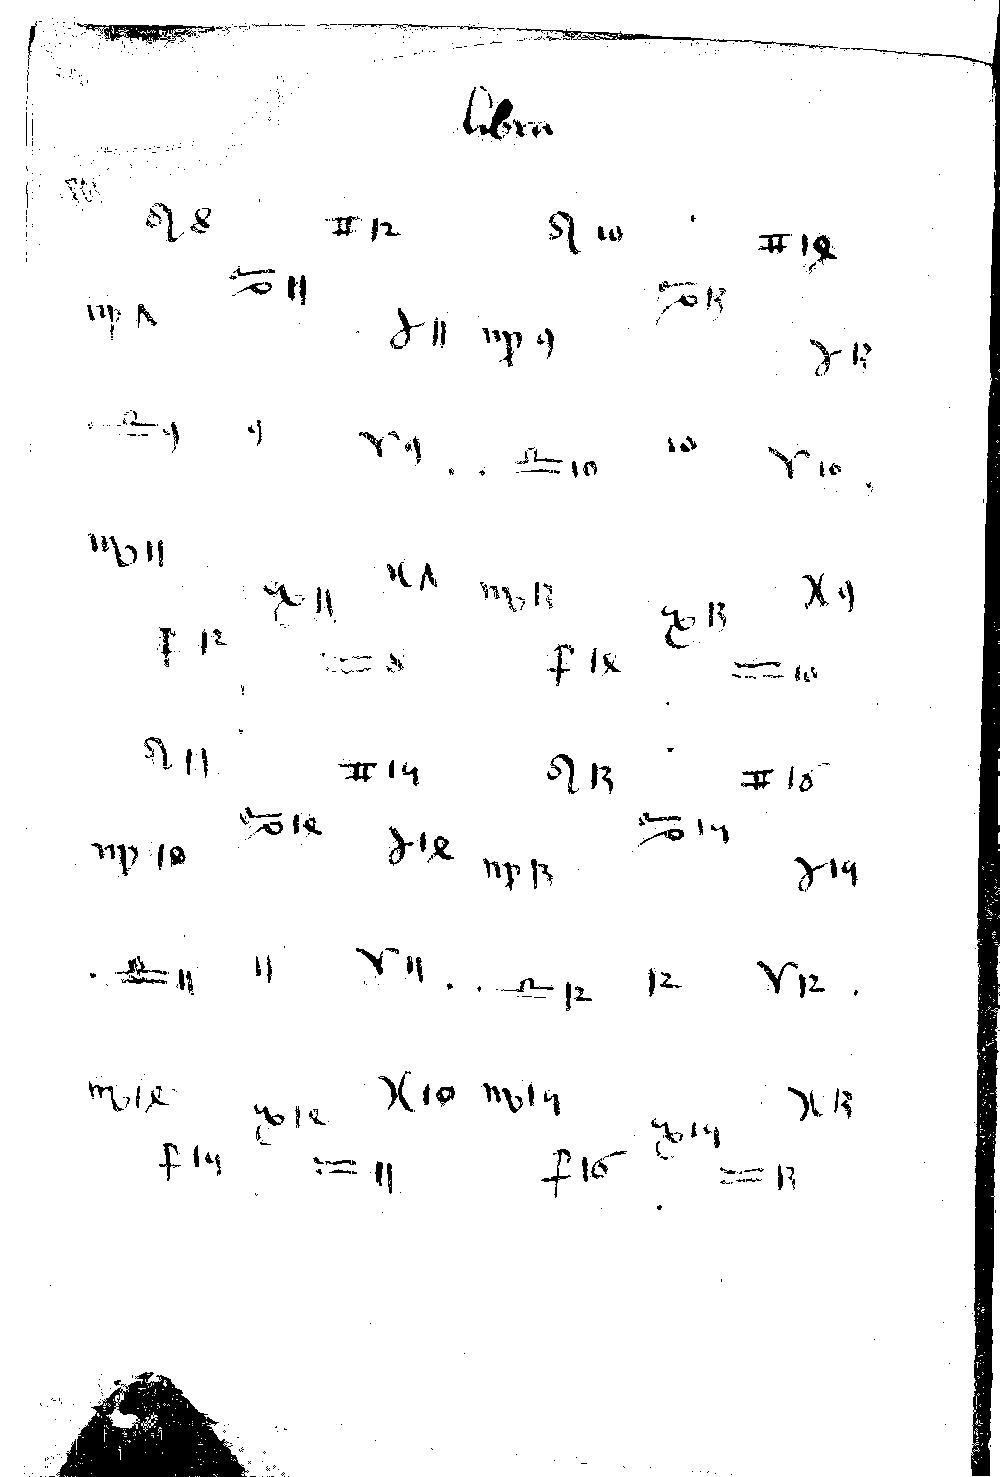 libra
♌ 8 ♊ 12 ♌ 10 ♊ 18
♋ 11 ♋ 13
♍ Λ ♉ 11 ♍ 9 ♉ 13
♎ 9 9 ♈ 9 . . ♎ 10 10 ♈ 10 .
♏ 11 ♑ 11 ♓ Λ ♏ 13 ♑ 13 ♓ 9
♐ 12 ♒ 8 ♐ 18 ♒ 10
♌ 11 ♊ 14 ♌ 13 ♊ 15
♋ 18 ♋ 14
♍ 10 ♉ 18 ♍ 13 ♉ 14
. ♎ 11 11 ♈ 11 . . ♎ 12 12 ♈ 12 .
♏ 18 ♑ 18 ♓ 10 ♏ 14 ♑ 14 ♓ 13
♐ 14 ♒ 11 ♐ 15 ♒ 13